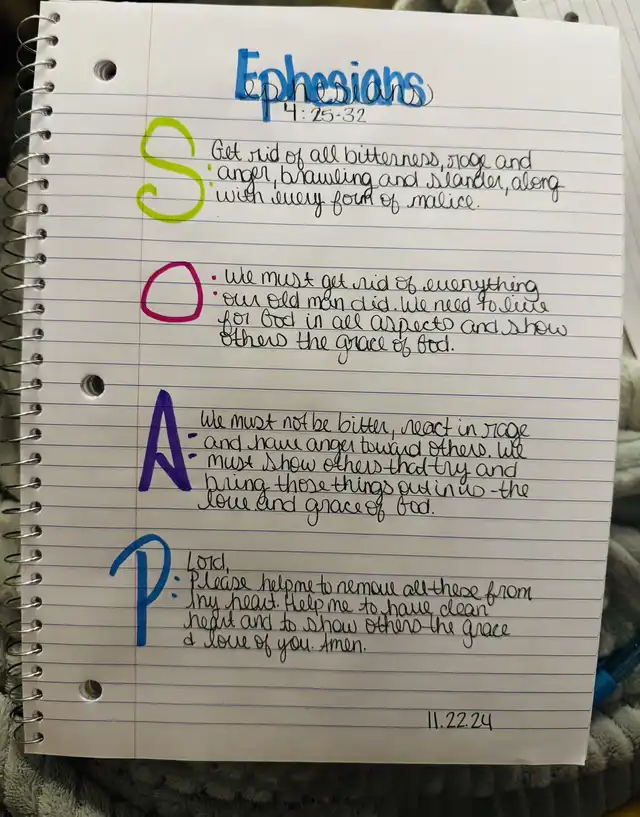 Ephesians
ephesians
4:25-32
S: Get rid of all bitterness, rage and
anger, brawling and slander, along
with every form of malice.
O: We must get rid of everything
our old man did. We need to live
for God in all aspects and show
others the grace of God.
A: We must not be bitter, react in rage
and have anger toward others. We
must show others that try and
bring those things out in us - the
love and grace of God.
P: Lord,
Please help me to remove all these from
my heart. Help me to have clean
heart and to show others the grace
& love of you. Amen.
11.22.24